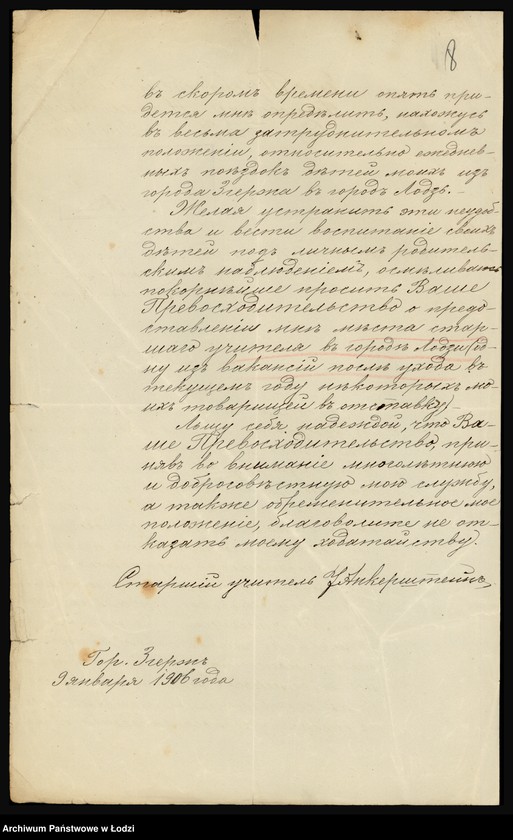 8
въ скоромъ времени опять при-
дется мнѣ опредѣлить, нахожусь
въ весьма затруднительномъ
положеніи, относительно ежеднев-
ныхъ поѣздокъ дѣтей моихъ изъ
города Згержа въ городъ Лодзь. -
Желая устранить эти неудоб-
ства и вести воспитаніе своихъ
дѣтей подъ личнымъ родитель-
скимъ наблюденіемъ, осмѣливаюсь
покорнѣйше просить Ваше
Превосходительство о предо-
ставленіи мнѣ мѣста стар-
шаго учителя въ городѣ Лодзи (од-
ну изъ вакансій послѣ ухода въ
текущемъ году нѣкоторыхъ мо-
ихъ товарищей въ отставку) -
Льщу себя надеждой, что Ва-
ше Превосходительство, при-
нявъ во вниманіе многолѣтнюю
и добросовѣстную мою службу,
а также обременительное мое
положеніе, благоволите не от-
казать моему ходатайству.
Старшій учитель Анкерштейнъ
Гор. Згержъ
9 января 1906 года
Archiwum Państwowe w Łodzi